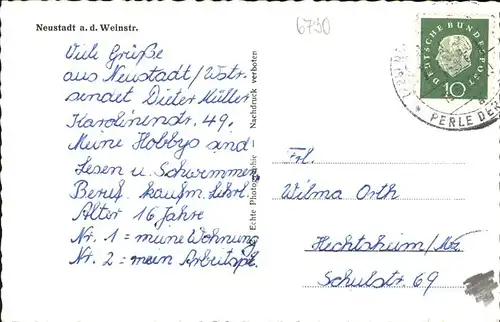 Neustadt a. d. Weinstr.
6730
DEUTSCHE BUNDESPOST
10
* PERLE DE
Viele Grüße
aus Neustadt/Wstr.
sendet Dieter Müller
Karolinenstr. 49.
Meine Hobbys sind:
Lesen u. Schwimmen
Beruf. kaufm. Lehrl.
Alter 16 Jahre
Nr. 1 = meine Wohnung
Nr. 2 = mein Arbeitspl.
Echte Photographie Nachdruck verboten
Frl.
Wilma Orth
Hechtsheim/Mz
Schulstr. 69